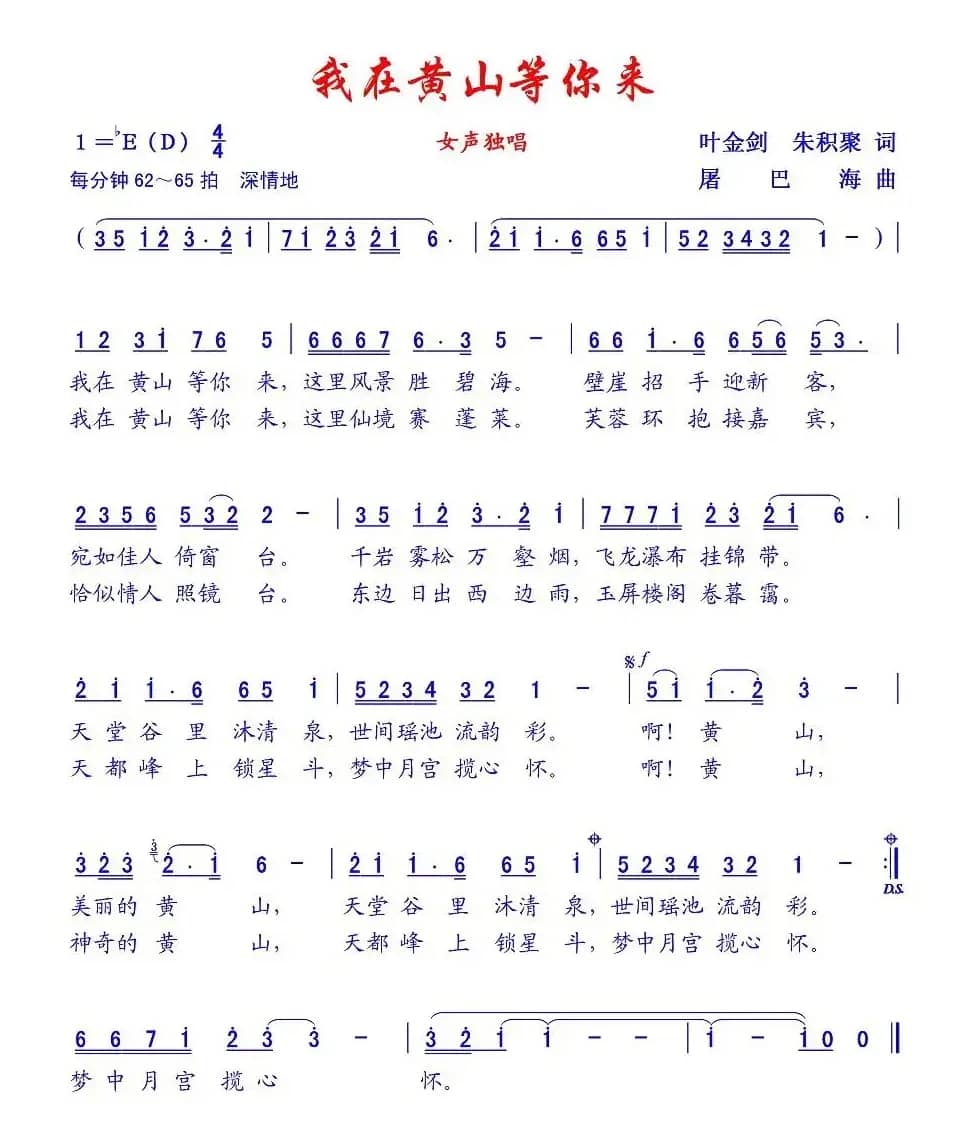 我在黄山等你来
1=♭E（D） 4/4 女声独唱 叶金剑 朱积聚 词
每分钟 62～65 拍 深情地 屠巴海 曲
（3 5 1̇ 2̇ 3̇ · 2̇ 1̇ | 7 1̇ 2̇ 3̇ 2̇ 1̇ 6 · | 2̇ 1̇ 1̇ · 6 6 5 1̇ | 5 2 3 4 3 2 1 －）|
1 2 3 1̇ 7 6 5 | 6 6 6 7 6 · 3 5 － | 6 6 1̇ · 6 6 5 6 5 3 · |
我在 黄山 等你 来，这里风景 胜 碧 海。 壁崖 招 手 迎新 客，
我在 黄山 等你 来，这里仙境 赛 蓬 莱。 芙蓉 环 抱 接嘉 宾，
2 3 5 6 5 3 2 2 － | 3 5 1̇ 2̇ 3̇ · 2̇ 1̇ | 7 7 7 1̇ 2̇ 3̇ 2̇ 1̇ 6 · |
宛如佳人 倚窗 台。 千岩 雾松 万 壑 烟，飞龙瀑布 挂锦 带。
恰似情人 照镜 台。 东边 日出 西 边 雨，玉屏楼阁 卷暮 霭。
𝄋 f
2̇ 1̇ 1̇ · 6 6 5 1̇ | 5 2 3 4 3 2 1 － | 5 1̇ 1̇ · 2̇ 3̇ － |
天 堂 谷 里 沐清 泉，世间瑶池 流韵 彩。 啊！黄 山，
天 都 峰 上 锁星 斗，梦中月宫 揽心 怀。 啊！黄 山，
3̇ 2̇ 3̇ 3̇ 2̇ · 1̇ 6 － | 2̇ 1̇ 1̇ · 6 6 5 1̇ 𝄌 | 5 2 3 4 3 2 1 － 𝄌 :‖
D.S.
美丽的 黄 山， 天堂 谷 里 沐清 泉，世间瑶池 流韵 彩。
神奇的 黄 山， 天都 峰 上 锁星 斗，梦中月宫 揽心 怀。
6 6 7 1̇ 2̇ 3̇ 3̇ － | 3̇ 2̇ 1̇ 1̇ － － | 1̇ － 1̇ 0 0 ‖
梦 中 月 宫 揽 心 怀。